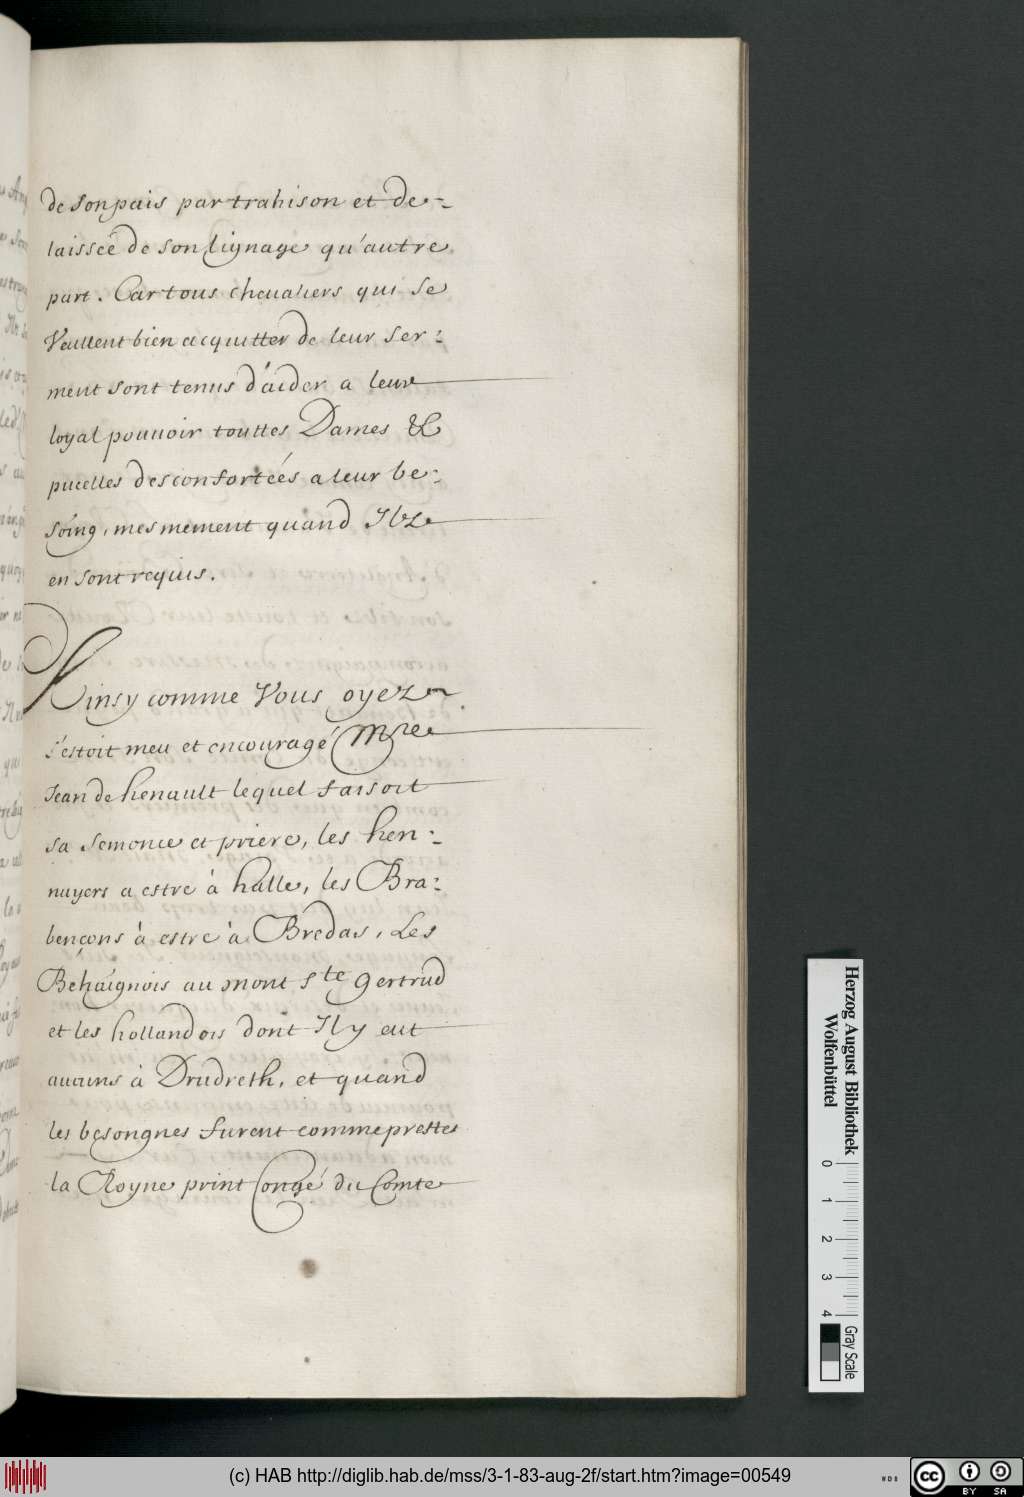 de son pais par trahison et de-
laisseé de son lignage qu'autre
part. Car tous cheualiers qui se
Veullent bien acquitter de leur ser:
ment sont tenus d'aider a leur
loyal pouuoir touttes Dames &
pucelles desconfortées a leur be:
soing, mesmement quand Ilz
en sont requis.
Ainsy comme Vous oyez
s'estoit meu et encouragé Mre
Jean de henault lequel faisoit
sa semonce et priere, les hen:
nuyers a estre à halle, les Bra:
bençons à estre à Bredas, Les
Behaignois au mont Ste gertrud
et les hollandois dont Il y eut
aucuns à Drudreth, et quand
les besongnes furent comme prestes
la Royne print Congé du Comte
Herzog August Bibliothek
Wolfenbüttel
0 1 2 3 4
Gray Scale
(c) HAB http://diglib.hab.de/mss/3-1-83-aug-2f/start.htm?image=00549
WDB
CC BY SA